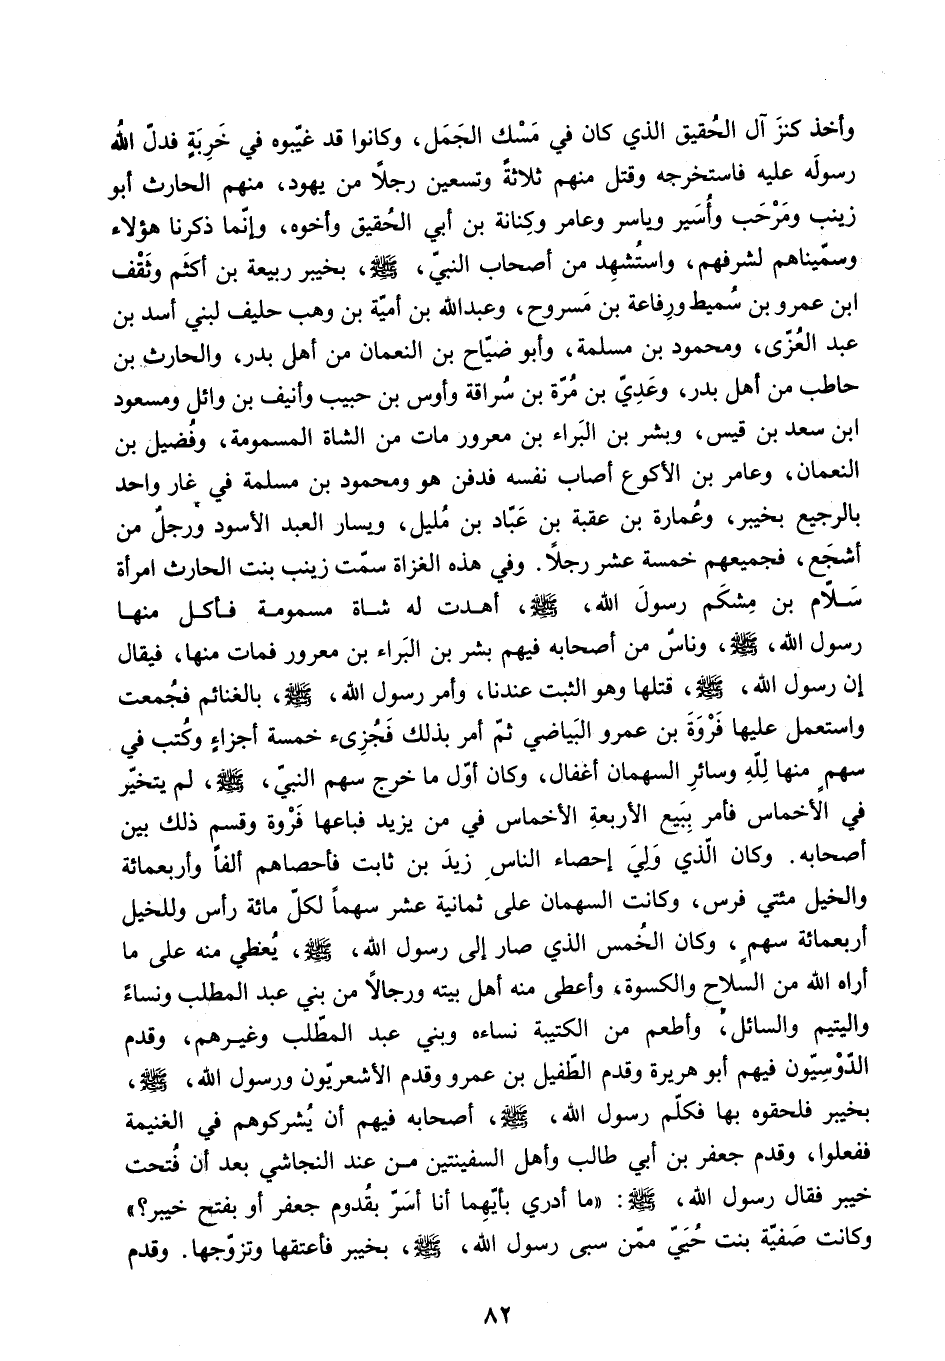 وأخذ كنزَ آل الحُقيق الذي كان في مَسْك الجَمَل، وكانوا قد غيّبوه في خَرِبَةٍ فدلّ اللهُ
رسولَه عليه فاستخرجه وقتل منهم ثلاثةً وتسعين رجلاً من يهود، منهم الحارث أبو
زينب ومَرْحَب وأُسَير وياسر وعامر وكِنانة بن أبي الحُقيق وأخوه، وإنّما ذكرنا هؤلاء
وسمّيناهم لشرفهم، واستُشهِد من أصحاب النبيّ، ﷺ، بخيبر ربيعة بن أكثَم وثَقْف
ابن عمرو بن سُميط ورِفاعة بن مَسروح، وعبدالله بن أميّة بن وهب حليف لبني أسد بن
عبد العُزّى، ومحمود بن مسلمة، وأبو ضيّاح بن النعمان من أهل بدر، والحارث بن
حاطب من أهل بدر، وعَدِيّ بن مُرّة بن سُراقة وأوس بن حبيب وأنيف بن وائل ومسعود
ابن سعد بن قيس، وبشر بن البَراء بن معرور مات من الشاة المسمومة، وفُضيل بن
النعمان، وعامر بن الأكوع أصاب نفسه فدفن هو ومحمود بن مسلمة في غار واحد
بالرجيع بخيبر، وعُمارة بن عقبة بن عَبّاد بن مُليل، ويسار العبد الأسود ورجلٌ من
أشجَع، فجميعهم خمسة عشر رجلاً. وفي هذه الغزاة سمّت زينب بنت الحارث امرأة
سَلاّم بن مِشكَم رسولَ الله، ﷺ، أهدت له شاة مسمومة فأكل منها
رسول الله، ﷺ، وناسٌ من أصحابه فيهم بشر بن البَراء بن معرور فمات منها، فيقال
إن رسول الله، ﷺ، قتلها وهو الثبت عندنا، وأمر رسول الله، ﷺ، بالغنائم فجُمعت
واستعمل عليها فَرْوَةَ بن عمرو البَياضي ثمّ أمر بذلك فَجُزِىء خمسة أجزاءٍ وكُتب في
سهمٍ منها لِلّهِ وسائرِ السهمان أغفال، وكان أوّل ما خرج سهم النبيّ، ﷺ، لم يتخيّر
في الأخماس فأمر بِبَيع الأربعةِ الأخماس في من يزيد فباعها فَرْوة وقسم ذلك بين
أصحابه. وكان الّذي وَلِيَ إحصاء الناس زيدَ بن ثابت فأحصاهم ألفاً وأربعمائة
والخيل مئتي فرس، وكانت السهمان على ثمانية عشر سهماً لكلّ مائة رأس وللخيل
أربعمائة سهمٍ، وكان الخُمس الذي صار إلى رسول الله، ﷺ، يُعطي منه على ما
أراه الله من السلاح والكسوة، وأعطى منه أهل بيته ورجالاً من بني عبد المطلب ونساءً
واليتيم والسائل، وأطعم من الكتيبة نساءه وبني عبد المطّلب وغيرهم، وقدم
الدّوْسِيّون فيهم أبو هريرة وقدم الطّفيل بن عمرو وقدم الأشعريّون ورسول الله، ﷺ،
بخيبر فلحقوه بها فكلّم رسول الله، ﷺ، أصحابه فيهم أن يُشركوهم في الغنيمة
ففعلوا، وقدم جعفر بن أبي طالب وأهل السفينتين من عند النجاشي بعد أن فُتحت
خيبر فقال رسول الله، ﷺ: «ما أدري بأيّهِما أنا أسَرّ بقُدوم جعفر أو بفتح خيبر؟»
وكانت صَفيّة بنت حُيَيّ ممّن سبى رسول الله، ﷺ، بخيبر فأعتقها وتزوّجها. وقدم
٨٢